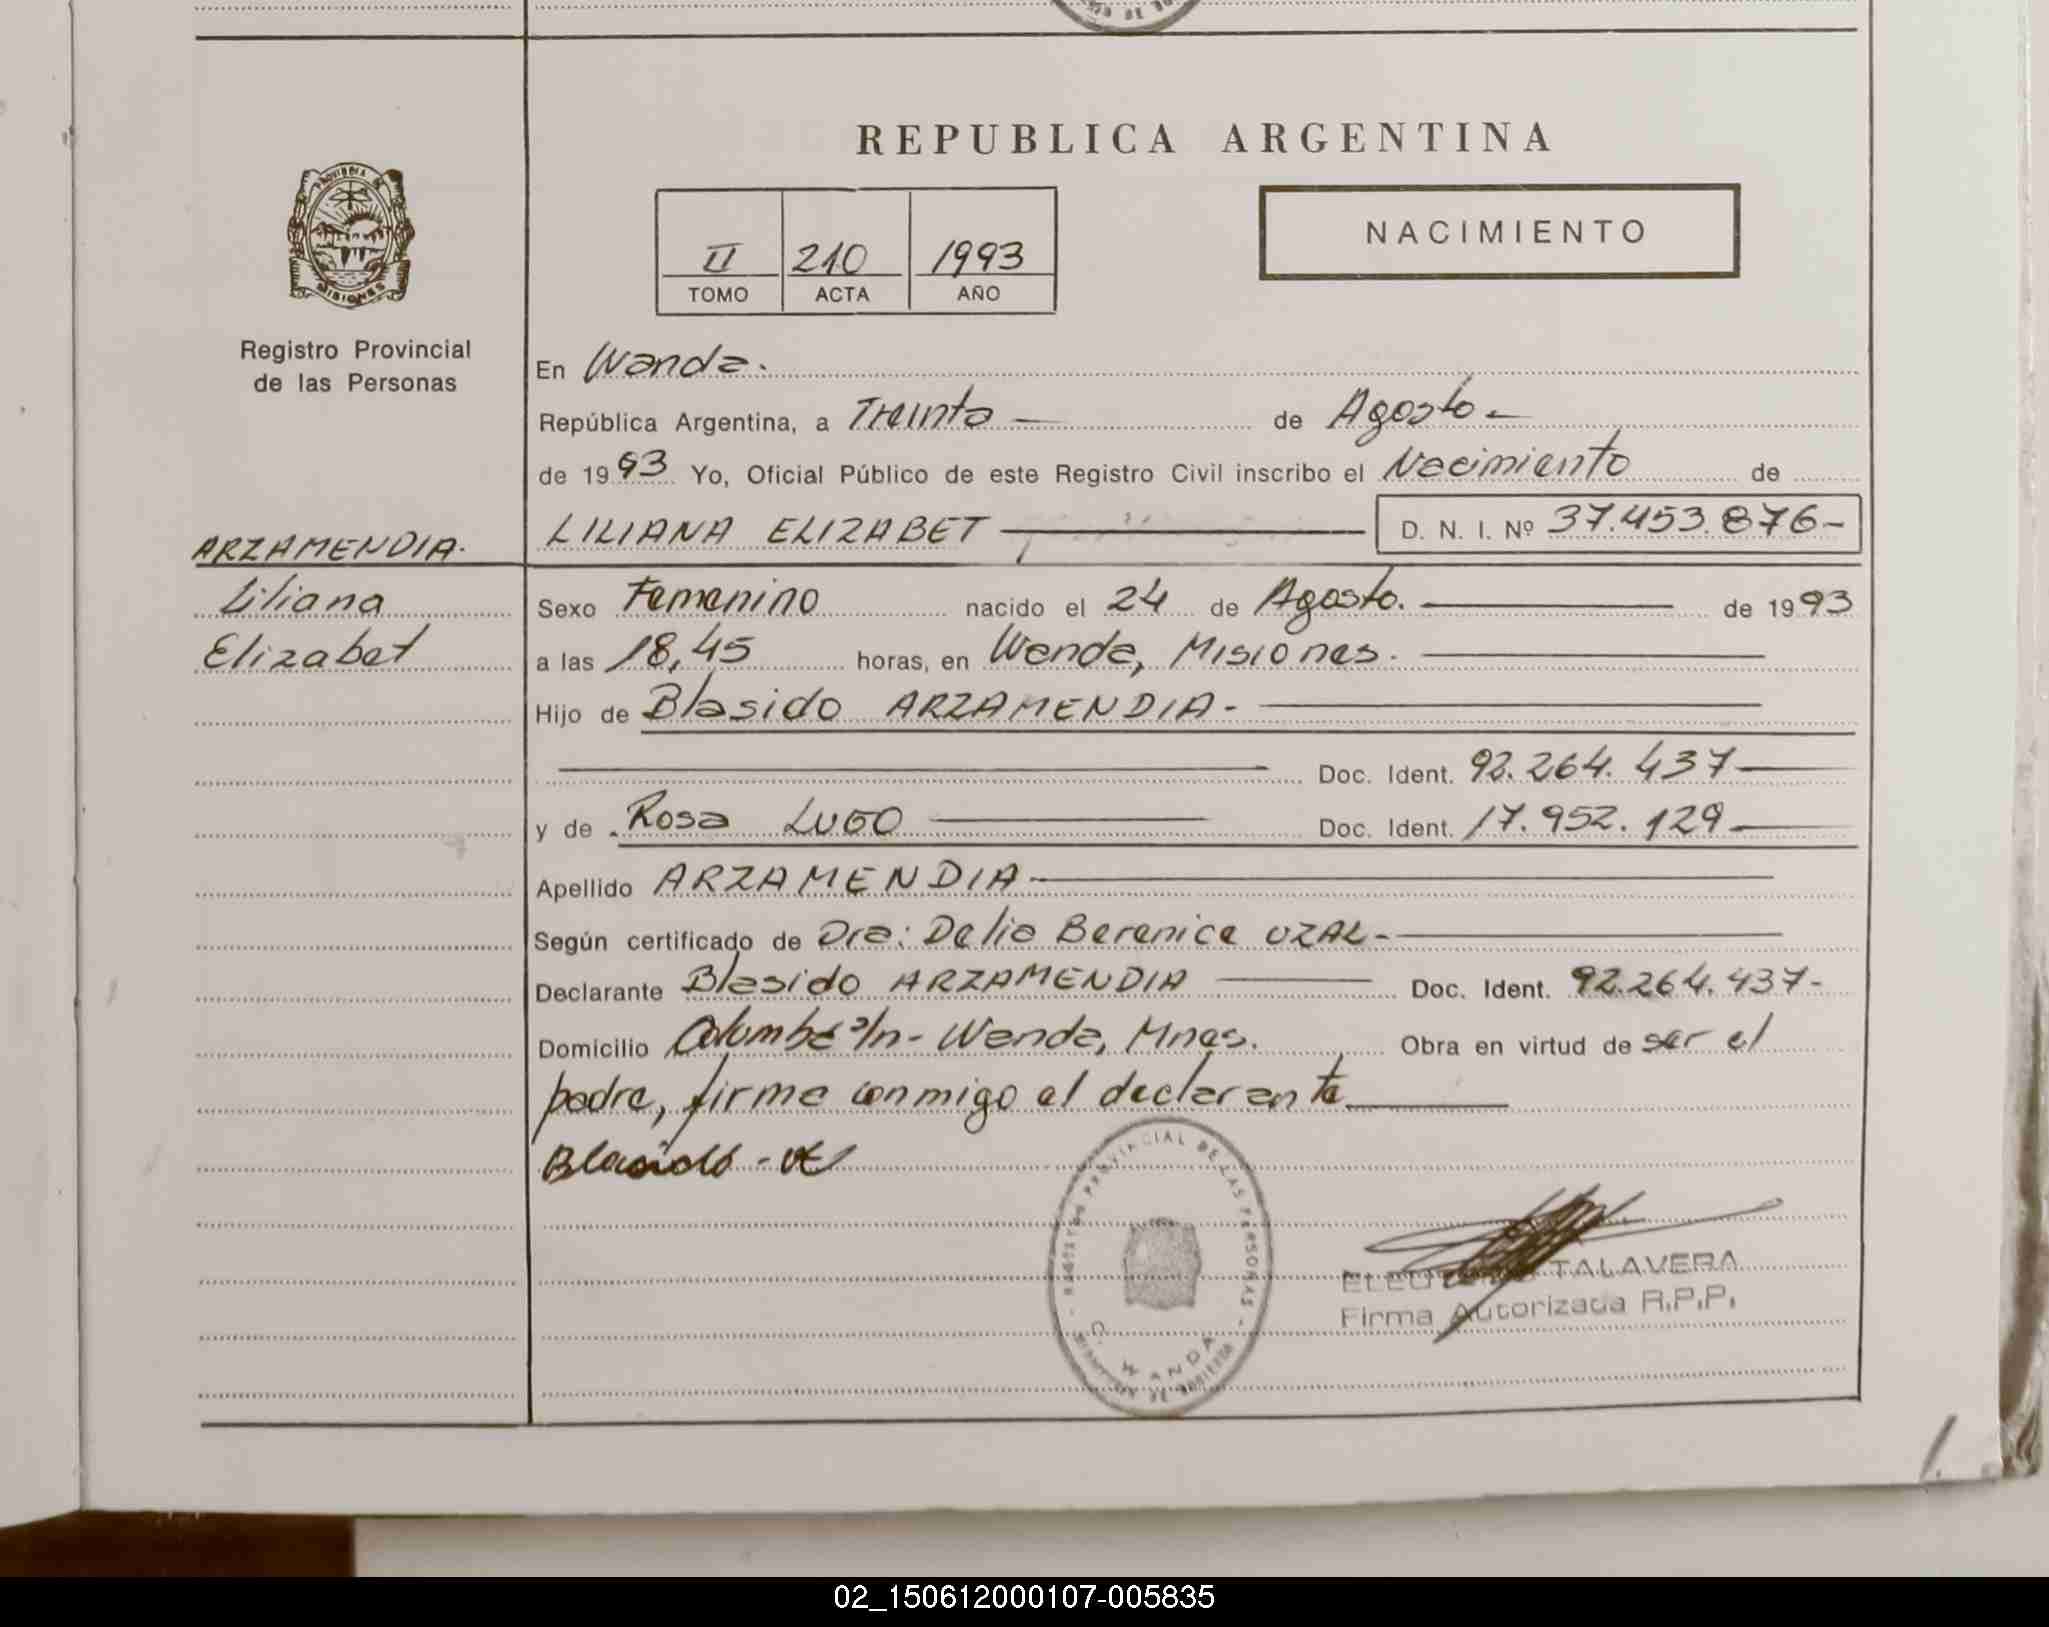 REPUBLICA ARGENTINA
PROVINCIA DE
MISIONES
Registro Provincial
de las Personas
II 210 1993
TOMO ACTA AÑO
NACIMIENTO
En Wanda.
República Argentina, a Treinta — de Agosto.-
de 1993 Yo, Oficial Público de este Registro Civil inscribo el Nacimiento de
LILIANA ELIZABET D. N. I. Nº 37.453.876-
ARZAMENDIA.
Liliana
Elizabet
Sexo Femenino nacido el 24 de Agosto. de 1993
a las 18,45 horas, en Wanda, Misiones.
Hijo de Blasido ARZAMENDIA-
Doc. Ident. 92.264.437
y de Rosa LUGO Doc. Ident. 17.952.129
Apellido ARZAMENDIA
Según certificado de Dra: Delia Berenice UZAL-
Declarante Blasido ARZAMENDIA Doc. Ident. 92.264.437-
Domicilio s/n- Wanda, Mnes. Obra en virtud de ser el
padre, firma conmigo el declarante
Blasido
REGISTRO PROVINCIAL DE LAS PERSONAS
WANDA
TALAVERA
Firma Autorizada R.P.P.
02_150612000107-005835